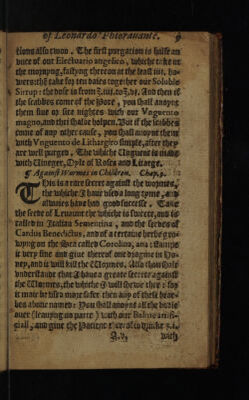 of Leonardo Phioravante. 9
tions also twoo. The first purgation is halfe an
unce of our Electuario angelico, whiche take in
the mornyng, fastyng thereon at the least iiii. ho-
wers: the take for ten daies together our Soluble
Sirrop: the dose is from ʒ.iiii. to ʒ.vi. And then if
the scabbes come of the Pore, you shall anoynt
them five or sixe nightes with our Unguento
magno, and thei shalbe holpen. But if the scabbes
come of any other cause, you shall anoynt them
with Unguento de Lithargirio simple, after they
are well purged. The whiche Unguent is made
with Vineger, Oyle of Roses and Litarge.
¶ Against Wormes in Children. Chap. 9.
This is a rare secret against the wormes,
the whiche I have used a long tyme, and
alwaies have had good successe. Take
the seede of Levaunt the whiche is sweete, and is
called in Italian Sementina, and the seedes of
Cardus Benedictus, and of a certaine herbe gro-
wyng on the Sea called Corolina, ana: Stampe
it very fine and give thereof one dragme in Ho-
ney, and it will kill the Wormes. Also thou shalt
understande that I have a greate Secrete against
the Wormes, the whiche I will shewe thee: for
it maie be used more safer then any of these hear-
bes above named: You shall anoynt all the bodie
over with our Balme artifi-
ciall, and give the Pacient thereof to drinke ʒ.i.
with